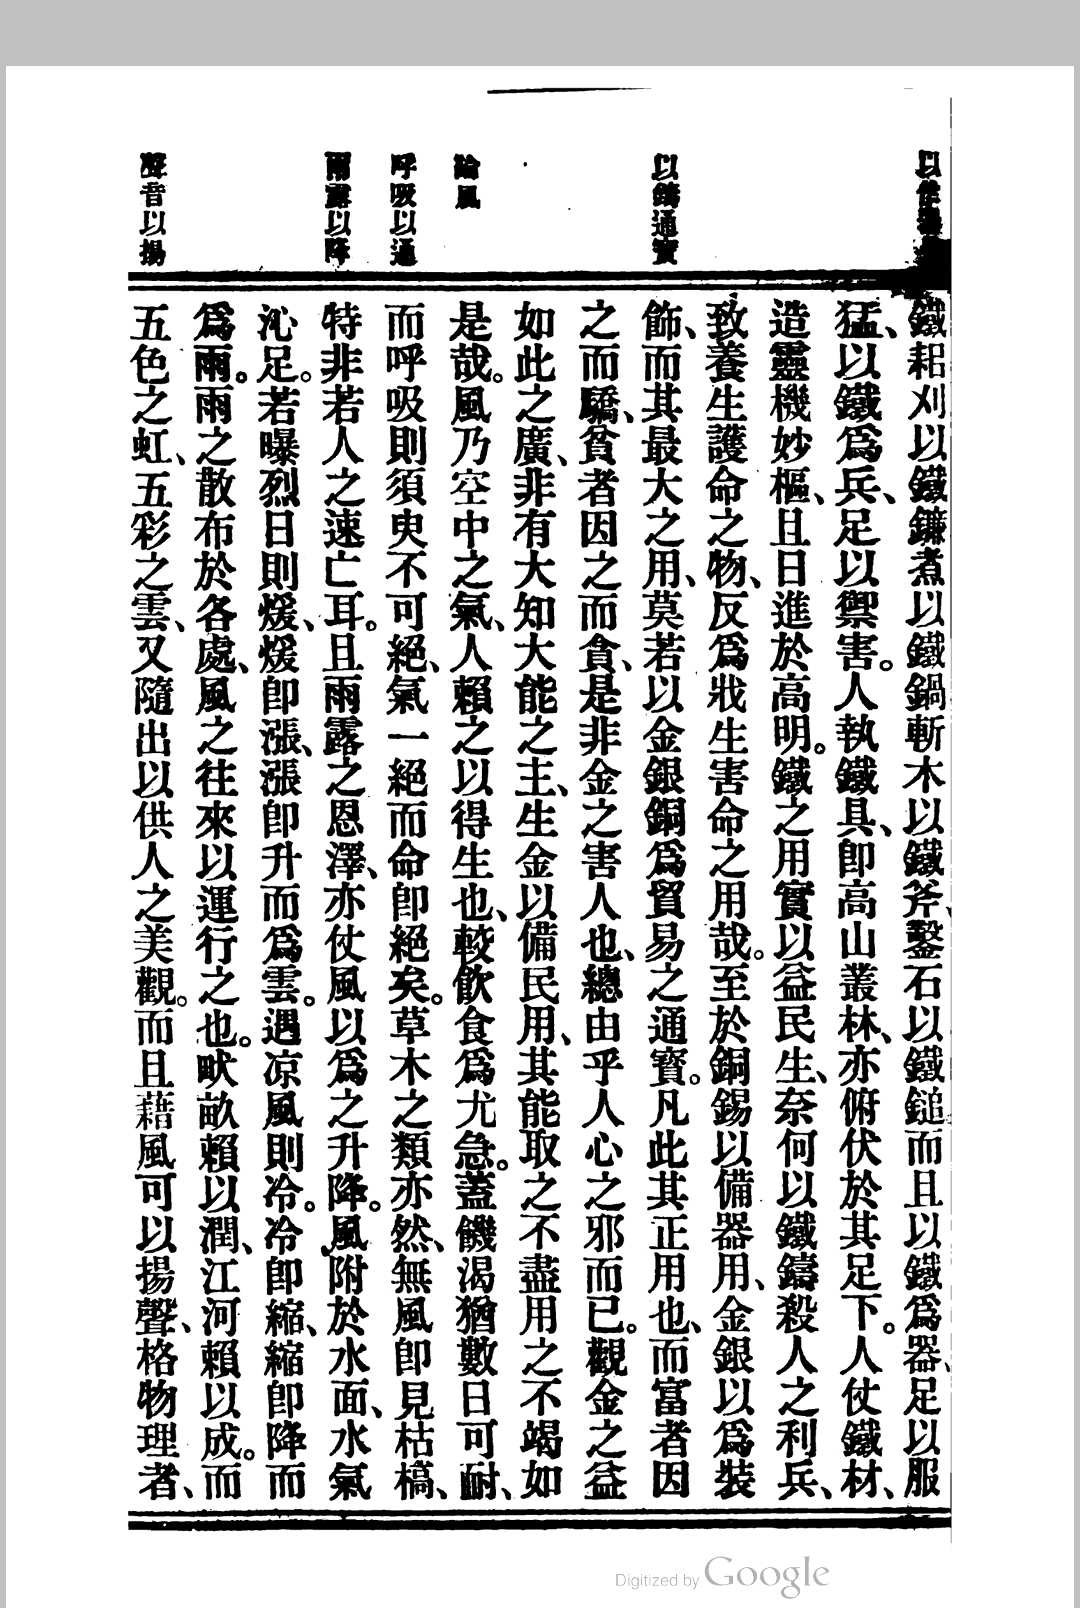 以鑄通寶
論風
呼吸以通
雨露以降
聲音以揚
鐵耜刈以鐵鐮煮以鐵鍋斬木以鐵斧、鑿石以鐵鎚而且以鐵爲器、足以服
猛、以鐵爲兵、足以禦害。人執鐵具、卽高山叢林、亦俯伏於其足下。人仗鐵材、
造靈機妙樞、且日進於高明。鐵之用實以益民生、奈何以鐵鑄殺人之利兵、
致養生護命之物、反爲戕生害命之用哉。至於銅錫以備器用、金銀以爲裝
飾、而其最大之用、莫若以金銀銅爲貿易之通寶。凡此其正用也、而富者因
之而驕、貧者因之而貪、是非金之害人也、總由乎人心之邪而已。觀金之益
如此之廣、非有大知大能之主、生金以備民用、其能取之不盡用之不竭如
是哉。風乃空中之氣、人賴之以得生也、較飲食爲尤急。蓋饑渴猶數日可耐、
而呼吸則須臾不可絕、氣一絕而命卽絕矣。草木之類亦然、無風卽見枯槁、
特非若人之速亡耳。且雨露之恩澤、亦仗風以爲之升降。風附於水面、水氣
沁足。若曝烈日則煖、煖卽漲、漲卽升而爲雲。遇凉風則冷。冷卽縮、縮卽降而
爲雨。雨之散布於各處、風之往來以運行之也。畎畝賴以潤、江河賴以成。而
五色之虹、五彩之雲、又隨出以供人之美觀。而且藉風可以揚聲、格物理者、
Digitized by Google